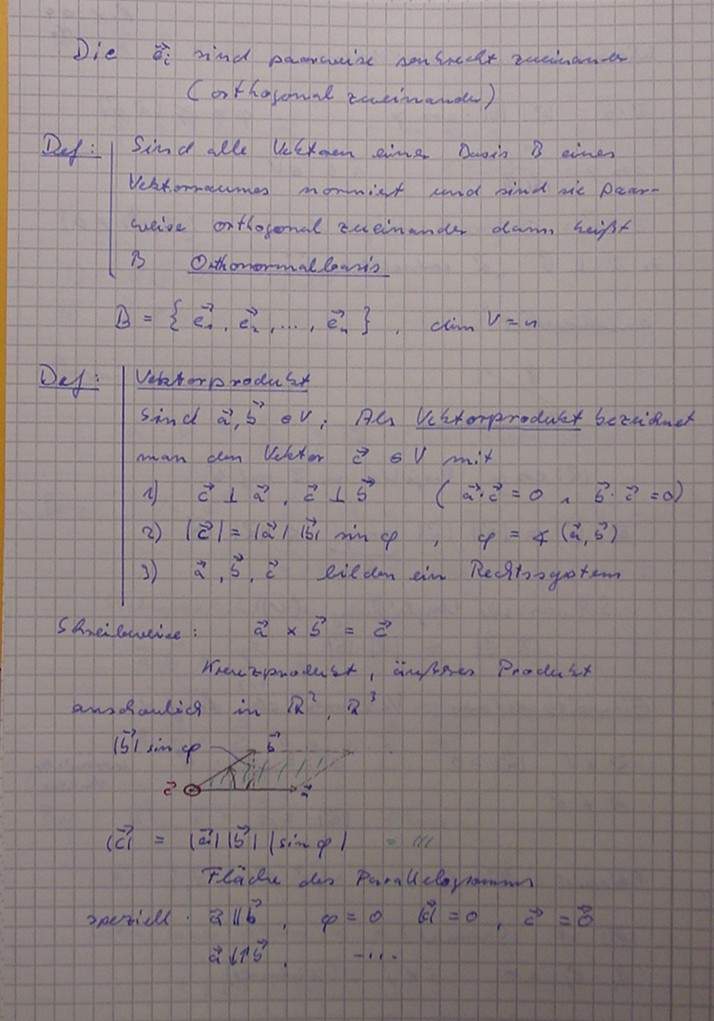 Die e⃗ᵢ sind paarweise senkrecht zueinander
(orthogonal zueinander)
Def: Sind alle Vektoren einer Basis B eines
Vektorraumes normiert und sind sie paar-
weise orthogonal zueinander dann heißt
B Orthonormalbasis
B = { e⃗₁, e⃗₂, ..., e⃗ₙ } , dim V = n
Def: Vektorprodukt
Sind a⃗, b⃗ ∈ V; Als Vektorprodukt bezeichnet
man den Vektor c⃗ ∈ V mit
1) c⃗ ⊥ a⃗ , c⃗ ⊥ b⃗ ( a⃗ · c⃗ = 0 ∧ b⃗ · c⃗ = 0)
2) |c⃗| = |a⃗| |b⃗| sin φ , φ = ∢ (a⃗, b⃗)
3) a⃗ , b⃗ , c⃗ bilden ein Rechtssystem
Schreibweise: a⃗ × b⃗ = c⃗
Kreuzprodukt, äußeres Produkt
anschaulich in ℝ², ℝ³
|b⃗| sin φ b⃗
c⃗ a⃗
|c⃗| = |a⃗| |b⃗| |sin φ| =
Fläche des Parallelogramms
speziell: a⃗ ∥ b⃗ , φ = 0 |c⃗| = 0 , c⃗ = 0⃗
a⃗ ↓↑ b⃗ , ....